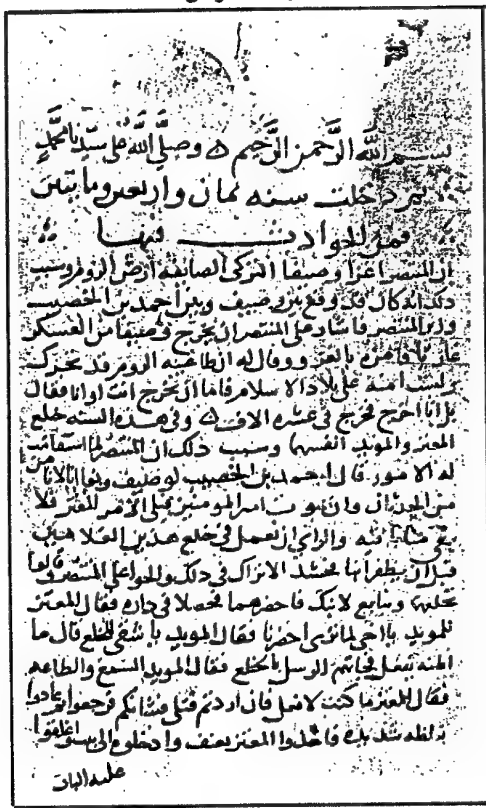 بسم الله الرحمن الرحيم وصلى الله على سيدنا محمد
ثم دخلت سنه ثمان واربعين ومايتين
فمن الحوادث فيها
ان المنتصر اغزا وصيفا التركى الصائفه ارض الروم وسبب
ذلك انه كان قد وقع بين وصيف وبين احمد بن الخصيب
وزير المنتصر فاشار على المنتصر ان يخرج وصيفا من العسكر
غازيا فامره بالغزو وقال له ان طاغيه الروم قد تحرك
ولست امنه على بلاد الاسلام فاما ان تخرج انت او انا فقال
بل انا اخرج فخرج في عشره الاف وفي هذه السنه خلع
المعتز والمويد انفسهما وسبب ذلك ان المنتصر لما استقامت
له الامور قال احمد بن الخصيب لوصيف وبغا انا لا نامن
من الحدثان وان يموت امير المومنين فيلى الامر المعتز فلا
يبقى منا باقيه والراي ان نعمل في خلع هذين الغلامين
قبل ان يظفرا بنا فجد الاتراك في ذلك والحوا على المنتصر وقالوا
نخلعهما ونبايع لابنك فاحضرهما فجعلا في دار فقال المعتز
للمويد يا اخي لم ترى احضرنا فقال المويد يا شقى للخلع قال ما
اظنه يفعل فجاتهم الرسل بالخلع فقال المويد السمع والطاعه
فقال المعتز ما كنت لافعل فان اردتم قتلى فشانكم فرجعوا ثم عادوا
بغلظه شديده فاخذوا المعتز بعنف وادخلوه الى بيت واغلقوا
عليه الباب